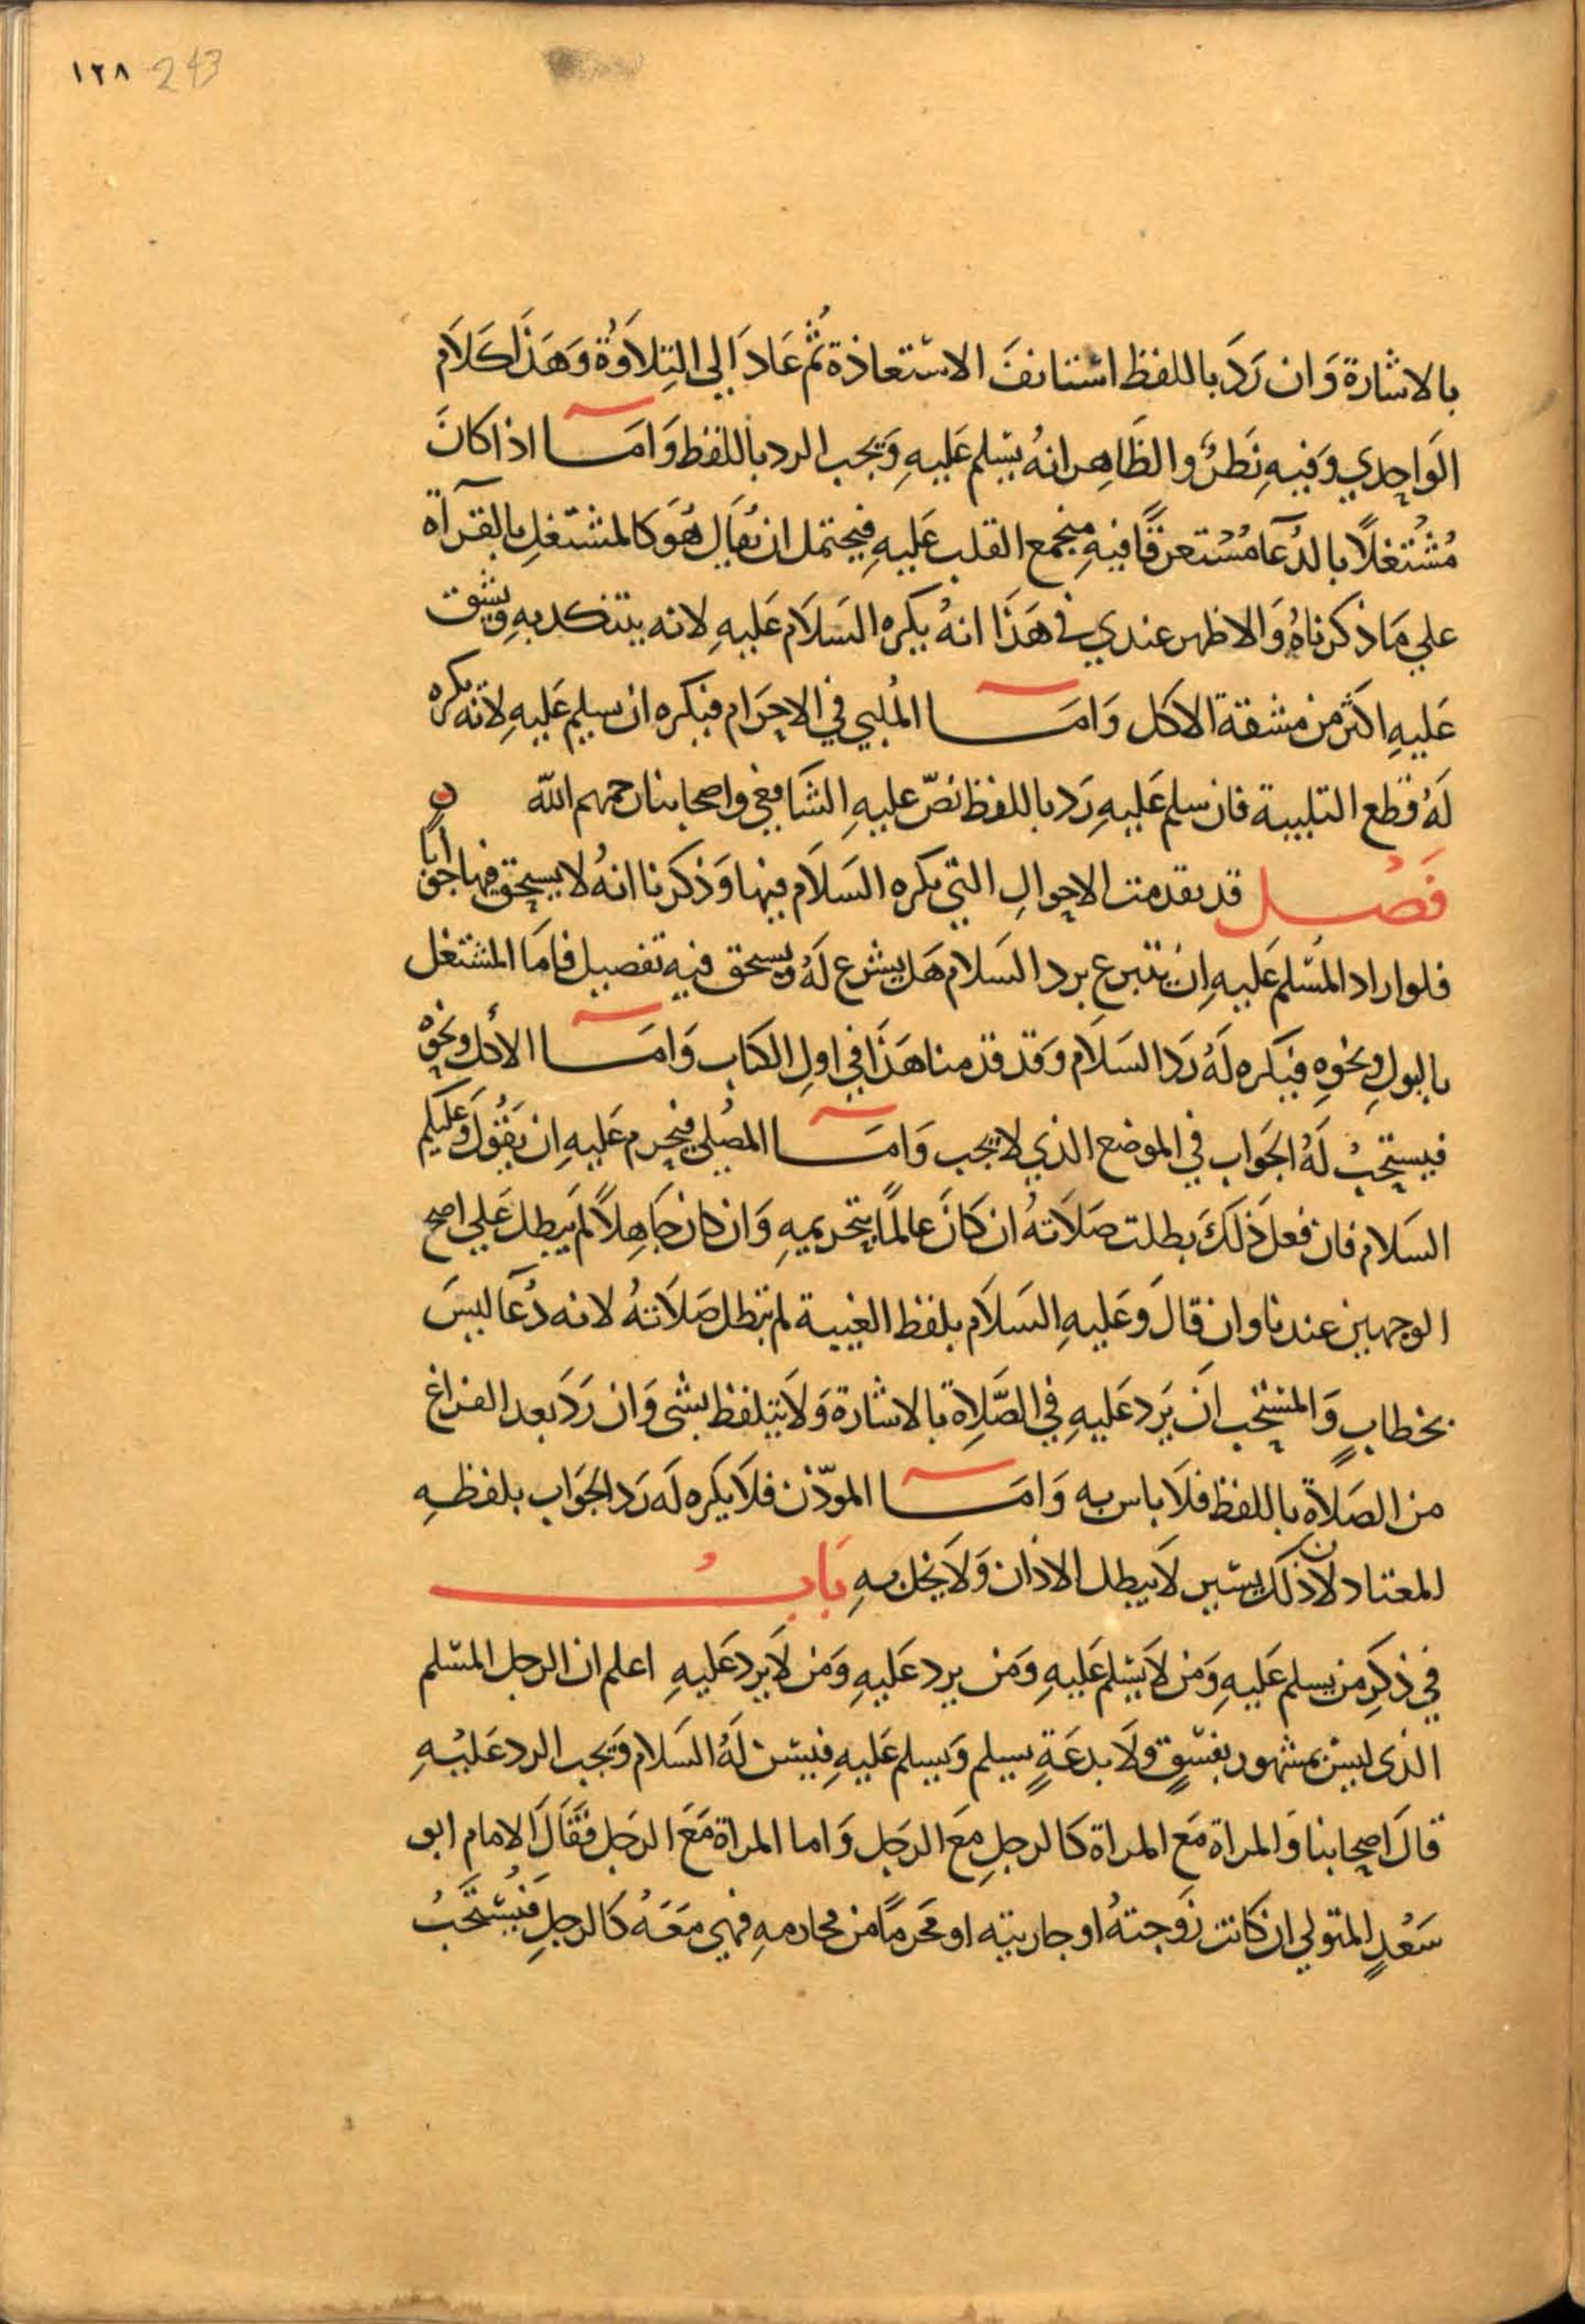 ١٢٨ 243
بالاشارة وَان رَدَ باللفظ استانفَ الاستعاذة ثُم عَادَ الي التِلاوَة وَهَذَا كَلاَم
الوَاحِدي وَفيهِ نَظَرٌ والظَاهِر انهُ يسَلم عَليهِ وَيجب الرد باللفظ وَامَا اذا كانَ
مُشتغلاً بالدُعَآ مُسْتعرقًا فيهِ مجمع القلب عَليهِ فيحتمل ان يُقَال هُوَ كالمشتغل بالقرآة
علي مَا ذكرناهُ وَالاظهر عندي في هَذَا انهُ يكره السَلاَم عَليهِ لانه يتنكد بهِ ويشق
عَليهِ اكثر من مشقة الاكل وَامَا المُلبي في الاحرَام فيكره ان يسلم عَليهِ لانه يكره
لَهُ قطع التلبية فان سلم عَليهِ رَد باللفظ نصّ عليهِ الشَافعي واصحابنا رحمهم الله ه
فَصْل قد تقدمت الاحوالِ التي يكره السَلاَم فيها وَذكرنا انهُ لا يستحق فيها جوَابا
فلو اراد المُسَلم عَليهِ ان يتبرع برد السَلام هَل يشرع لَهُ ويستحق فيه تفصيل فامَا المشتغل
بالبولِ ونحوِهِ فيكره لَهُ رَد السَلاَم وَقد قدمنا هَذَا في اولِ الكتاب وَامَا الأكل ونحوُه
فيستحبُ لَهُ الجَواب في الموضع الذي لا يجب وَامَا المصُلي فيحرم عَليهِ ان يَقُولَ وَعَليكم
السَلام فان فعلَ ذَلكَ بطلت صَلاَتهُ ان كَانَ عالمًا بتحريمهِ وَان كان جَاهِلاً لم يَبطل عَلي اصح
الوجهين عندنا وان قالَ وعَليهِ السَلاَم بلفظ الغيبة لم تبطل صَلاَتهُ لانه دُعَآ ليسَ
بخطابٍ وَالمستحب انَ يَرد عَليهِ في الصَّلاِة بالاشارة وَلاَ يتلفظ بشى وَان رَدَ بعد الفراغ
من الصَلاَةِ باللفظ فلاَ باس بهِ وَامَا الموذّن فلاَ يكره لَه رَد الجَوَاب بلفظهِ
المعتاد لان ذلكَ يسَير لاَ يبطل الاذان وَلاَ يخل بهِ بَابُ
في ذكرِ من يسلم عَليهِ وَمَن لاَ يسَلم عَليهِ وَمَن يرد عَليهِ وَمَن لاَ يرد عَليهِ اعلم ان الرجل المسَلم
الذي ليسَ بمشهور بفسَقٍ ولاَ بدعَةٍ يسلم وَيسلم عَليهِ فيسَن لَهُ السَلام وَيجب الرد عَليْهِ
قالَ اصحابنا وَالمراة مَع المراة كالرجلِ معَ الرجَل وَاما المراة مَعَ الرجَل فَقَالَ الامام ابو
سَعْدٍ المتولي ان كَانت زَوجتهُ او جاريته او محَرمًا من محارمهِ فهي مَعَهُ كَالرجلِ فَيُسْتَحَبُ